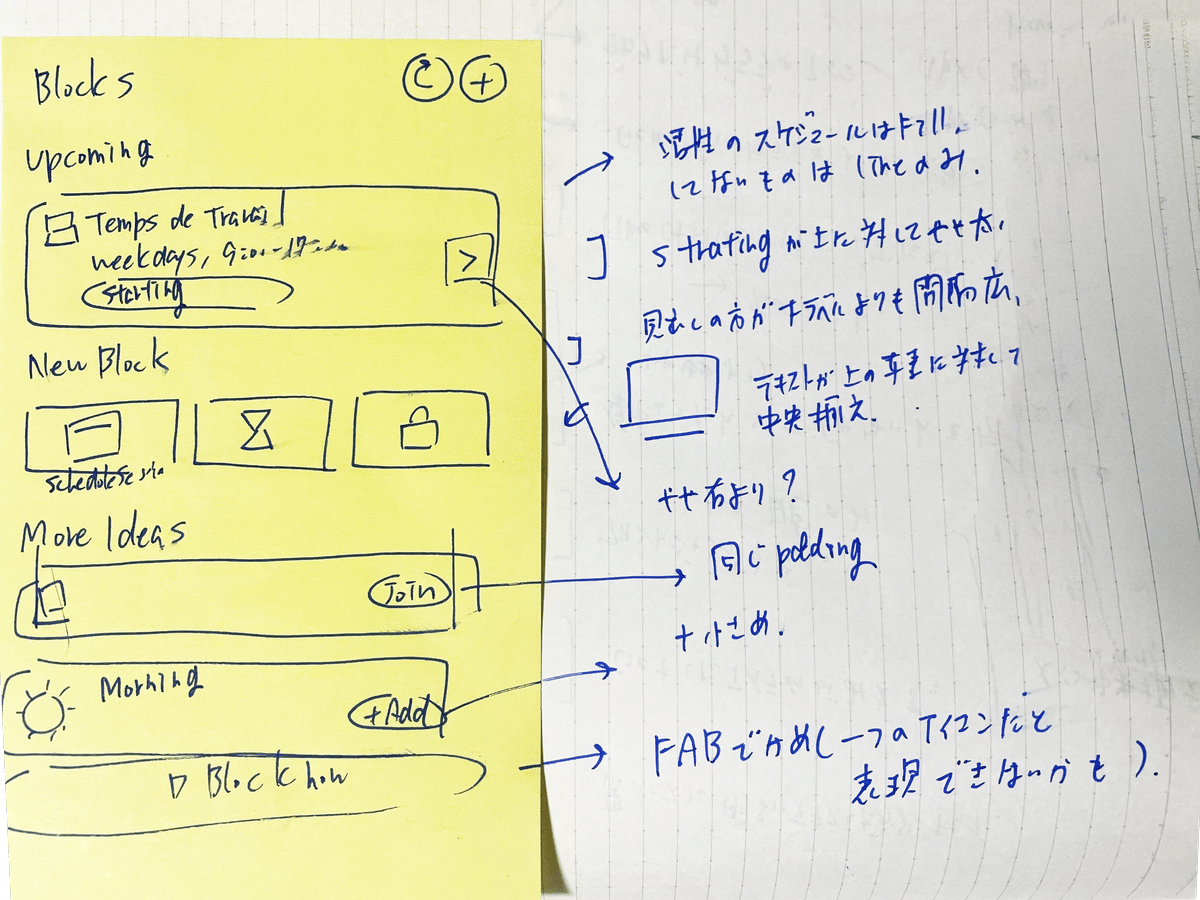 Blocks
+
Upcoming
Temps de Travail
weekdays, 9:00-17:
starting
>
New Block
schedule
More Ideas
Join
Morning
+Add
Block now
活性のスケジュールは下て11.
してないものは 1 Theのみ.
strating が上に対してやや太い
見出しの方がナラベルよりも間隔広い
テキストが上の
に対して
中央揃え.
やや右より?
同じ padding
+小さめ.
FABでかめ(一つのアイコンだと
表現できないかも).